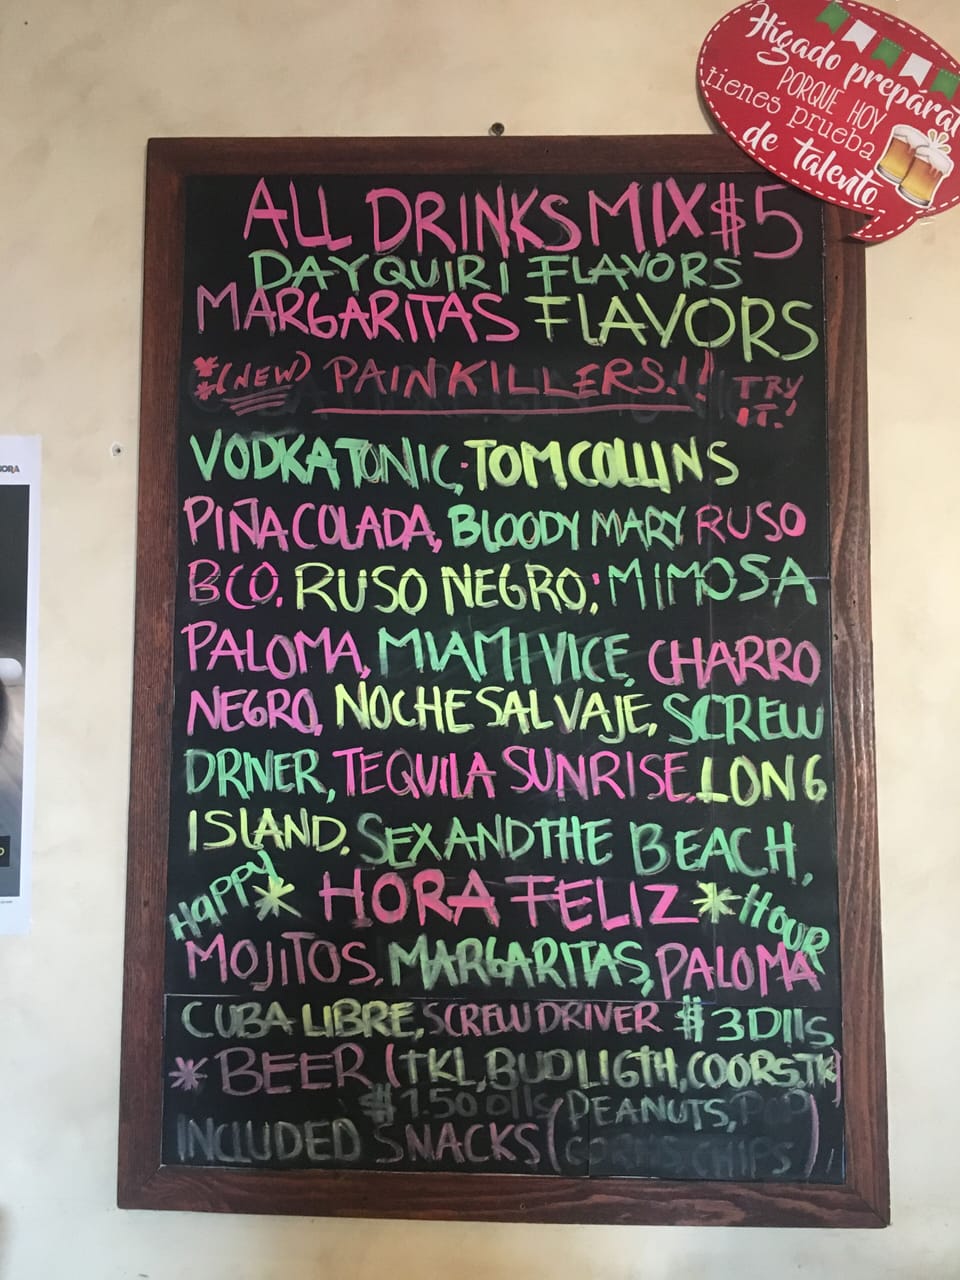 Hígado prepárat
PORQUE HOY
tienes prueba
de talento
ALL DRINKS MIX $5
DAYQUIRI FLAVORS
MARGARITAS FLAVORS
*(NEW) PAINKILLERS!! TRY
IT!
VODKATONIC, TOM COLLINS
PIÑA COLADA, BLOODY MARY, RUSO
BCO, RUSO NEGRO; MIMOSA
PALOMA, MIAMI VICE, CHARRO
NEGRO, NOCHE SALVAJE, SCREW
DRIVER, TEQUILA SUNRISE, LONG
ISLAND. SEX AND THE BEACH,
HAPPY * HORA FELIZ * HOUR
MOJITOS, MARGARITAS, PALOMA
CUBA LIBRE, SCREWDRIVER $3 Dlls
* BEER (TKL, BUD LIGTH, COORS, TK)
$1.50 Dlls (PEANUTS, POP
INCLUDED SNACKS CORNS, CHIPS)
NORA